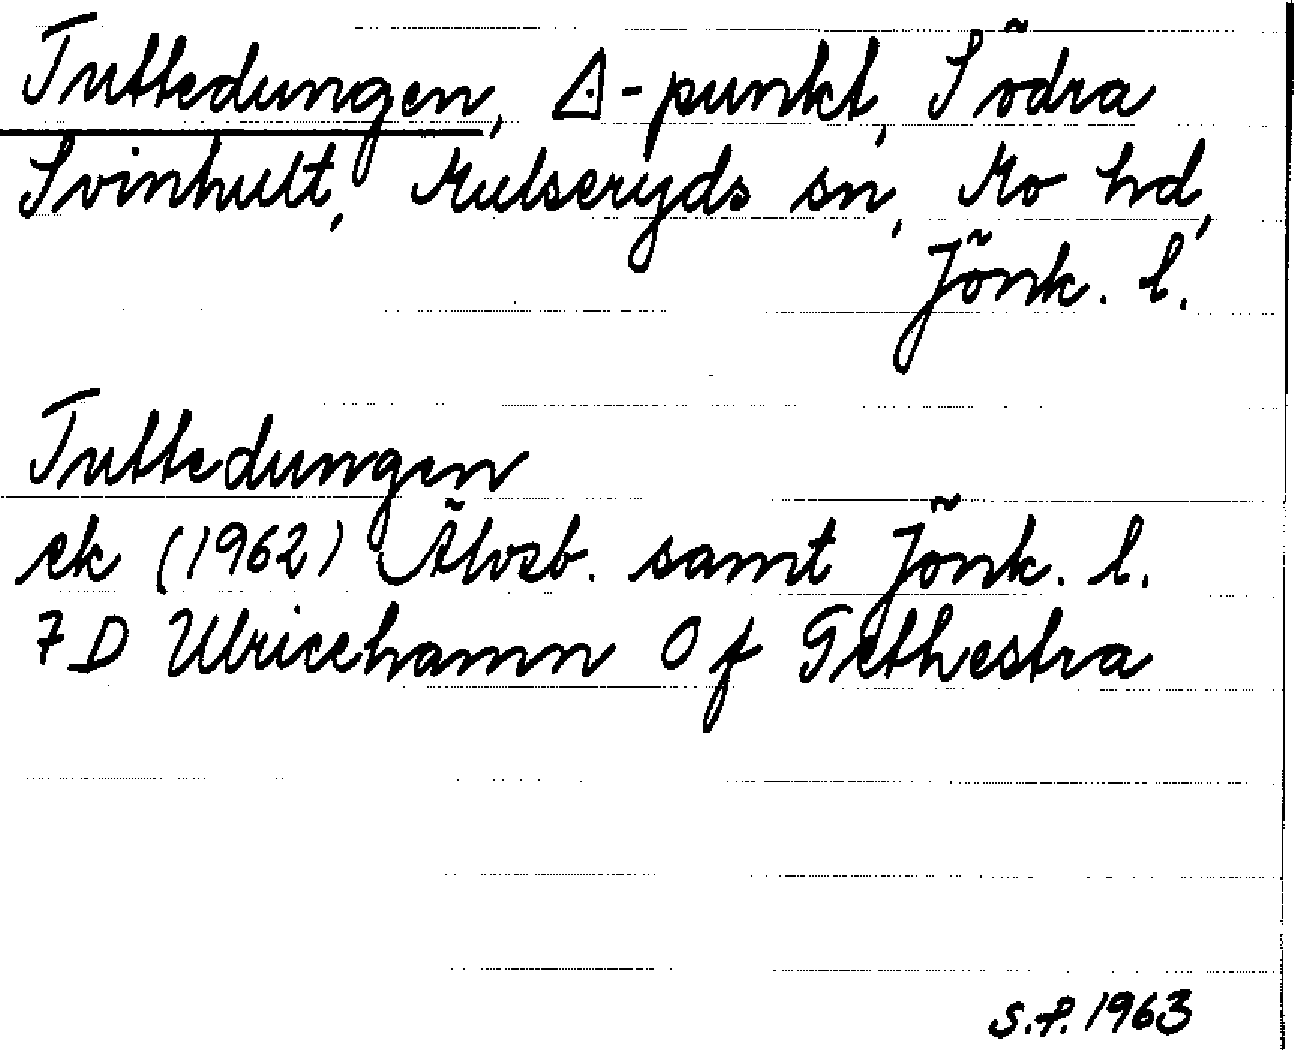 Tuttedungen, △-punkt, Södra
Svinhult, Mulseryds sn, Mo hd,
Jönk. l.
Tuttedungen
ek (1962) Älvsb. samt Jönk. l.
7D Ulricehamn 0f Grethestra
S.F. 1963